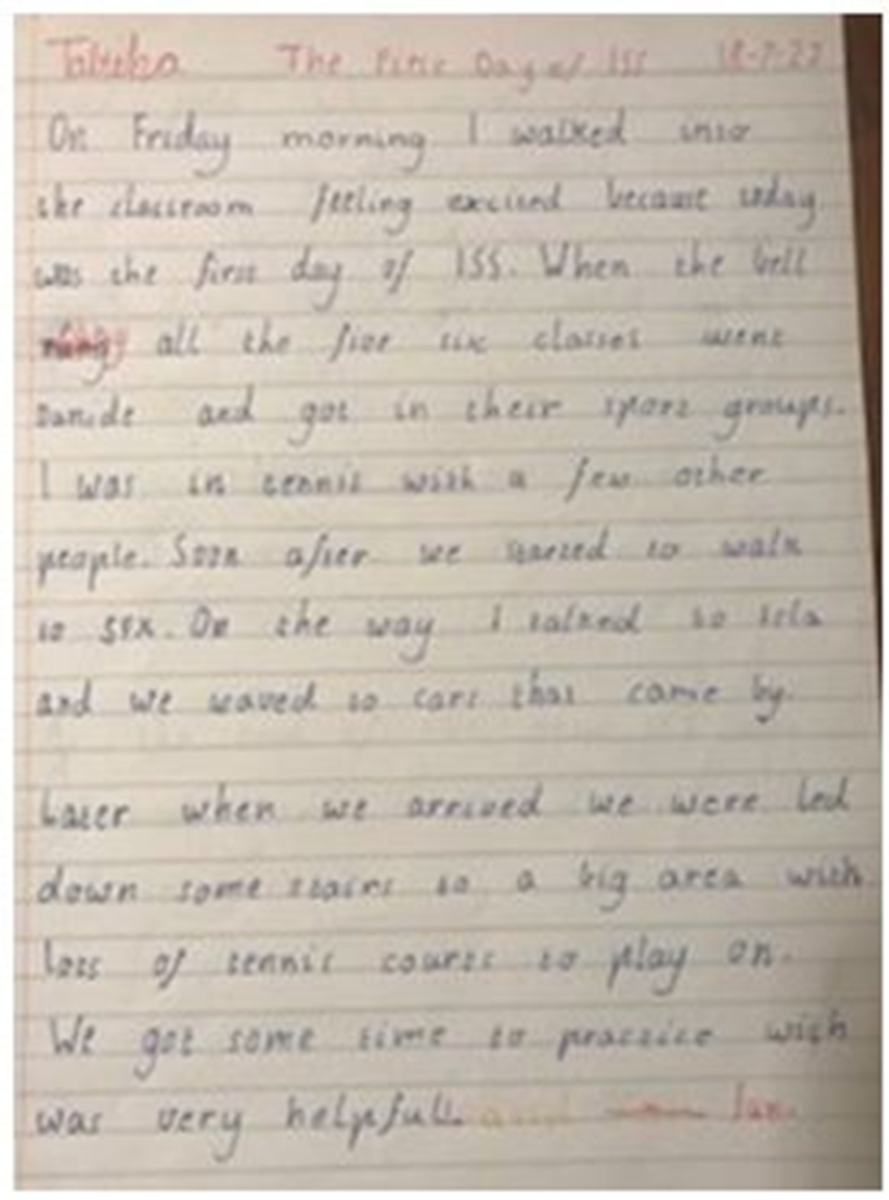 The First Day of ISS 18-7-22
On Friday morning I walked into
the classroom feeling excited because today
was the first day of ISS. When the bell
all the five six classes went
outside and got in their sport groups.
I was in tennis with a few other
people. Soon after we started to walk
to SFX. On the way I talked to Isla
and we waved to cars that came by.
Later when we arrived we were led
down some stairs to a big area with
lots of tennis courts to play on.
We got some time to practice wich
was very helpfull. and fun.